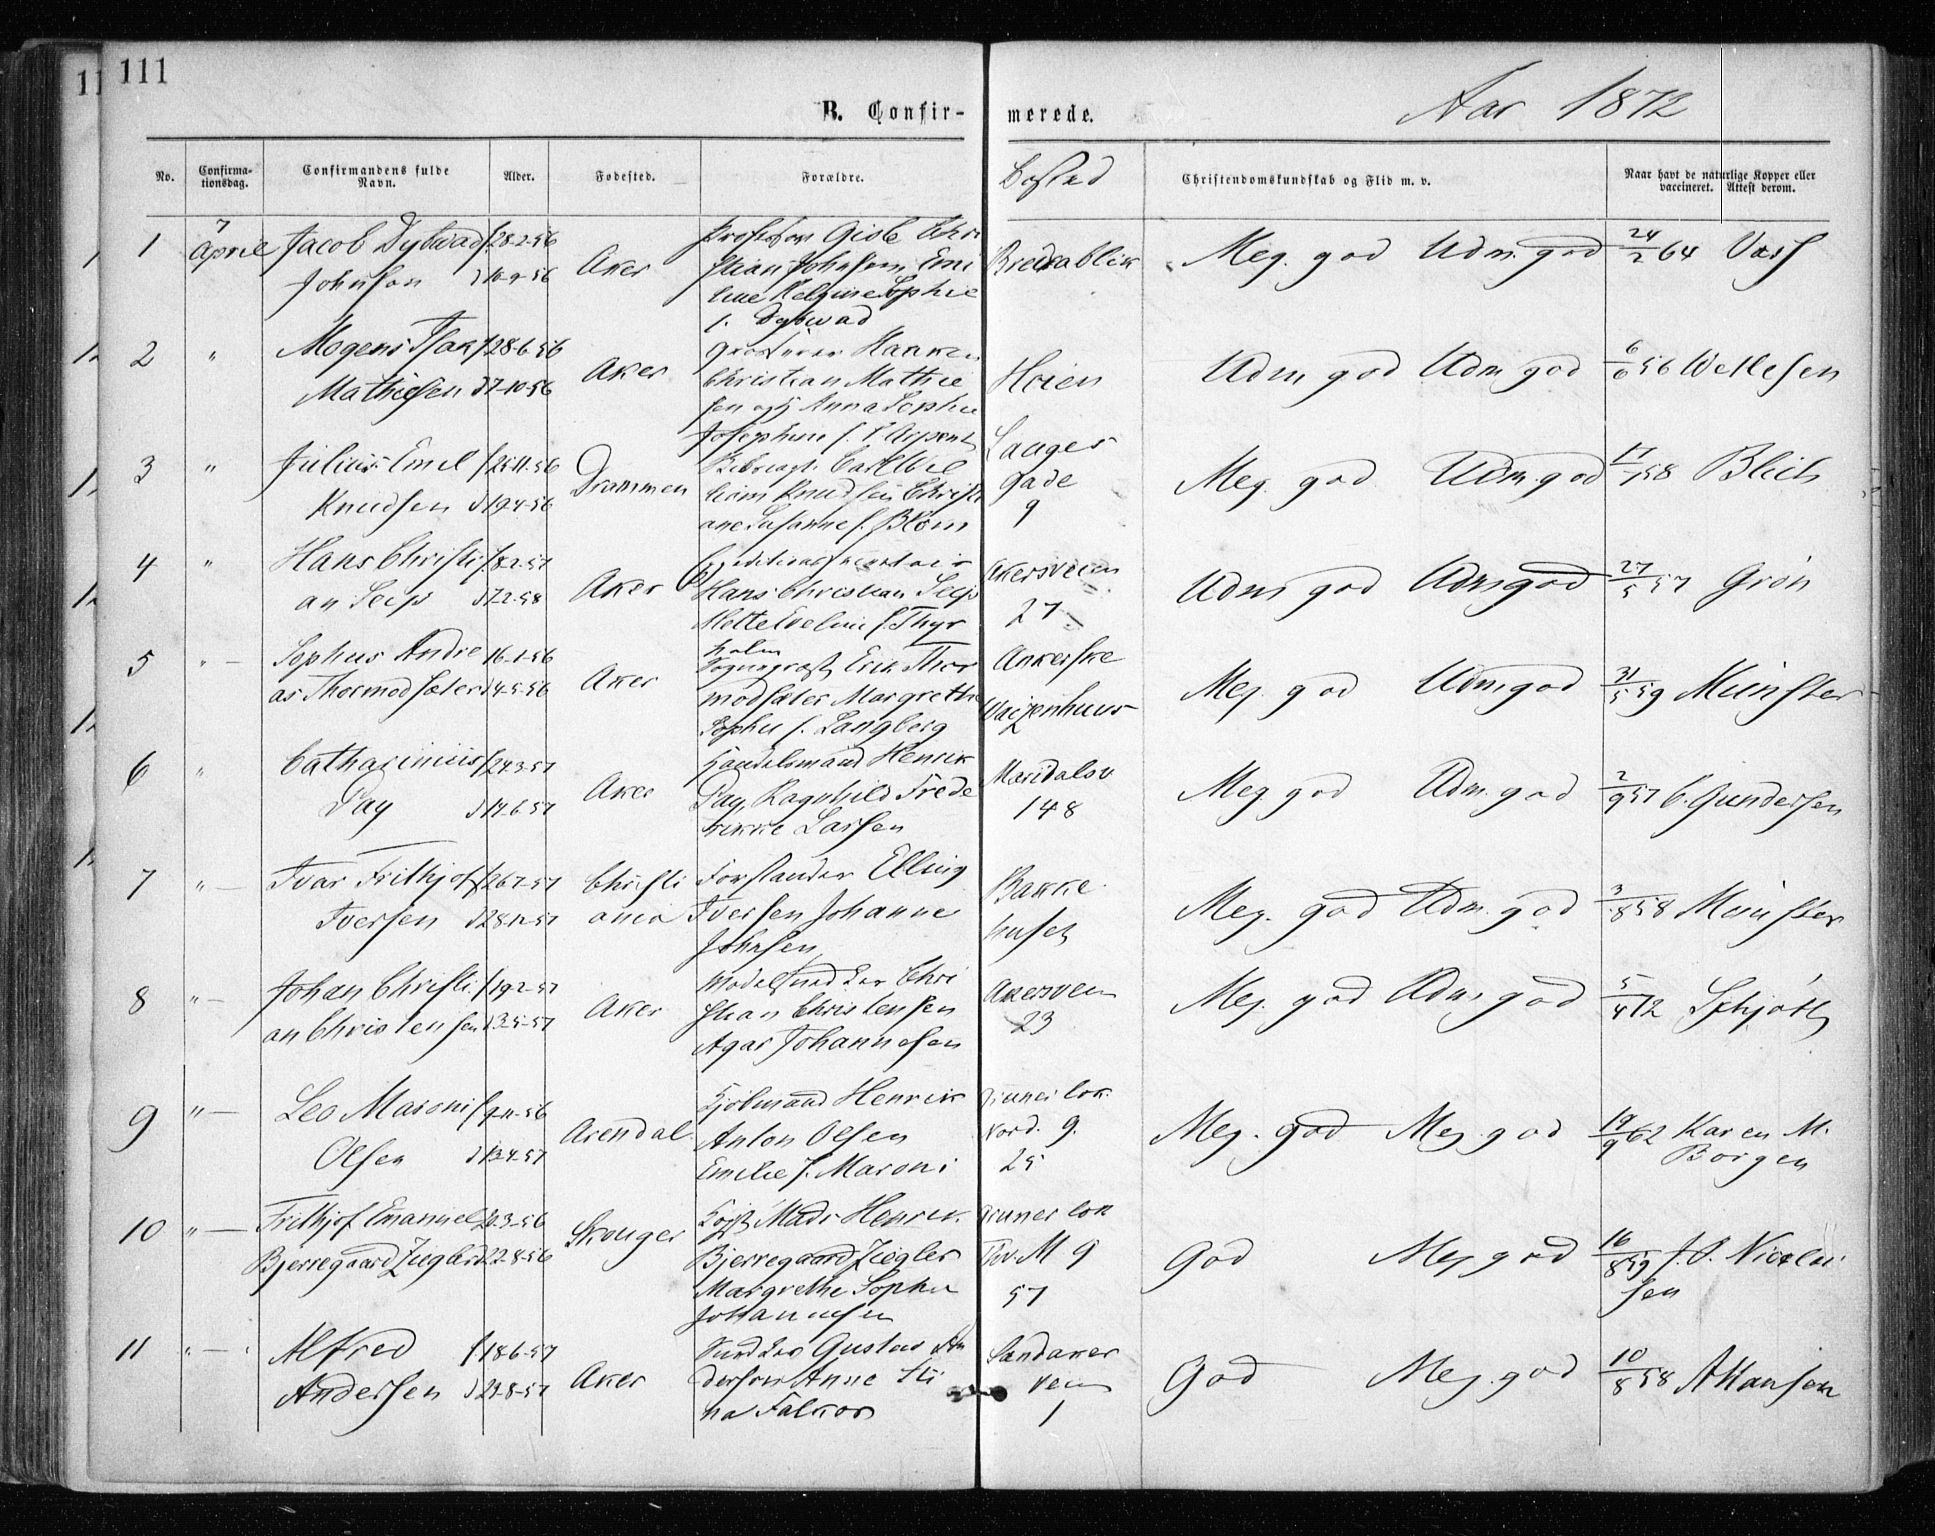 111
B. Confir-
merede.
Aar 1872
No.
Confirma-
tionsdag.
Confirmandens fulde
Navn.
Alder.
Fødested.
Forældre.
Bosted
Christendomskundskab og Flid m. v.
Naar havt de naturlige Kopper eller
vaccineret. Attest derom.
1
7
April
Jacob Dybwad
Johnson
f. 28-2-56
d 10-9-56
Aker
Professor Gisle Chri
stian Johnson, Emi
lie Helgine Sophie
f. Dybwad
Bredablik
Meg. god
Udm. god
24/2 64 Vass
2
"
Mogens Isak
Mathiesen
f 28-6-56
d 7-10-56
Aker
Haaken
Christian Mathie
sen og Anna Sophie
Josephine f. l'Arpent
Hoien
Udm god
Udm god
6/6 56 Wettesen
3
"
Julius Emil
Knudsen
f 25-11-56
d 19-4-56
Drammen
Carl Wil
helm Knudsen Christi
ane Susanne f. Blom
Lauges
gade
9
Meg. god
Udm. god
58 Blich
4
"
Hans Christi
an Seip
f. 8-2-57
d 7-2-58
Aker
Hans Christian Seip
Mette Eveline f. Thyr
holm
Akersveien
27
Udm god
Udm god
27/5 57 Grön
5
" —
Sophus Andre
as Thormodsæter
16-1-56
d 4-5-56
Aker
Sogneprest Erik Thor
modsæter Margrethe
Sophie f. Langberg
Ankerske
Waizenhuus
Meg. god
Udm god
31/5 59 Münster
6
"
Catharinius
Pay
f 24-3-57
d 14-6-57
Aker
Handelsmand Henrik
Pay, Ragnhild Frede
rikke Larsen
Maridalsv
148
Meg god
Udm. god
2/9 57 C. Gundersen
7
" —
Ivar Frithjof
Iversen
f 26-7-57
d 28-12-57
Christi
ania
Forstander Elling
Iversen Johanne
Johnsen
Bakke
huset
Meg. god
Udm. god
3/8 58 Münster
8
" —
Johan Christi
an Christensen
f 19-2-57
d 3-5-57
Aker
Modelsnedker Chri
stian Christensen
Agar Johannesen
Akersveien
23
Meg. god
Udm god
5/4 72 Schjött
9
" —
Leo Maroni
Olsen
f 9-11-56
d 13-4-57
Arendal
Kjøbmand Henrik
Anton Olsen
Emilie f. Maroni
Gruner lök.
Nord. g.
25
Meg. god
Meg god
19/9 62 Karen M.
Borgen
10
" —
Frithjof Emanuel
Bjerregaard Ziegler
20-3-56
d 22-8-56
Skouger
Mads Henrik
Bjerregaard Ziegler
Margrethe Sophie
Johannesen
Gruner lök
Thv. M g
57
God
Meg god
16/8 59 J. S. Nicolai
sen
11
" —
Alfred
Andersen
f 18-6-57
d 23-8-57
Aker
Snedker Gustav An
derson Anne Sti
na Falkor
Sandaker
veien
1
God
Meg. god
10/8 58 A Hansen